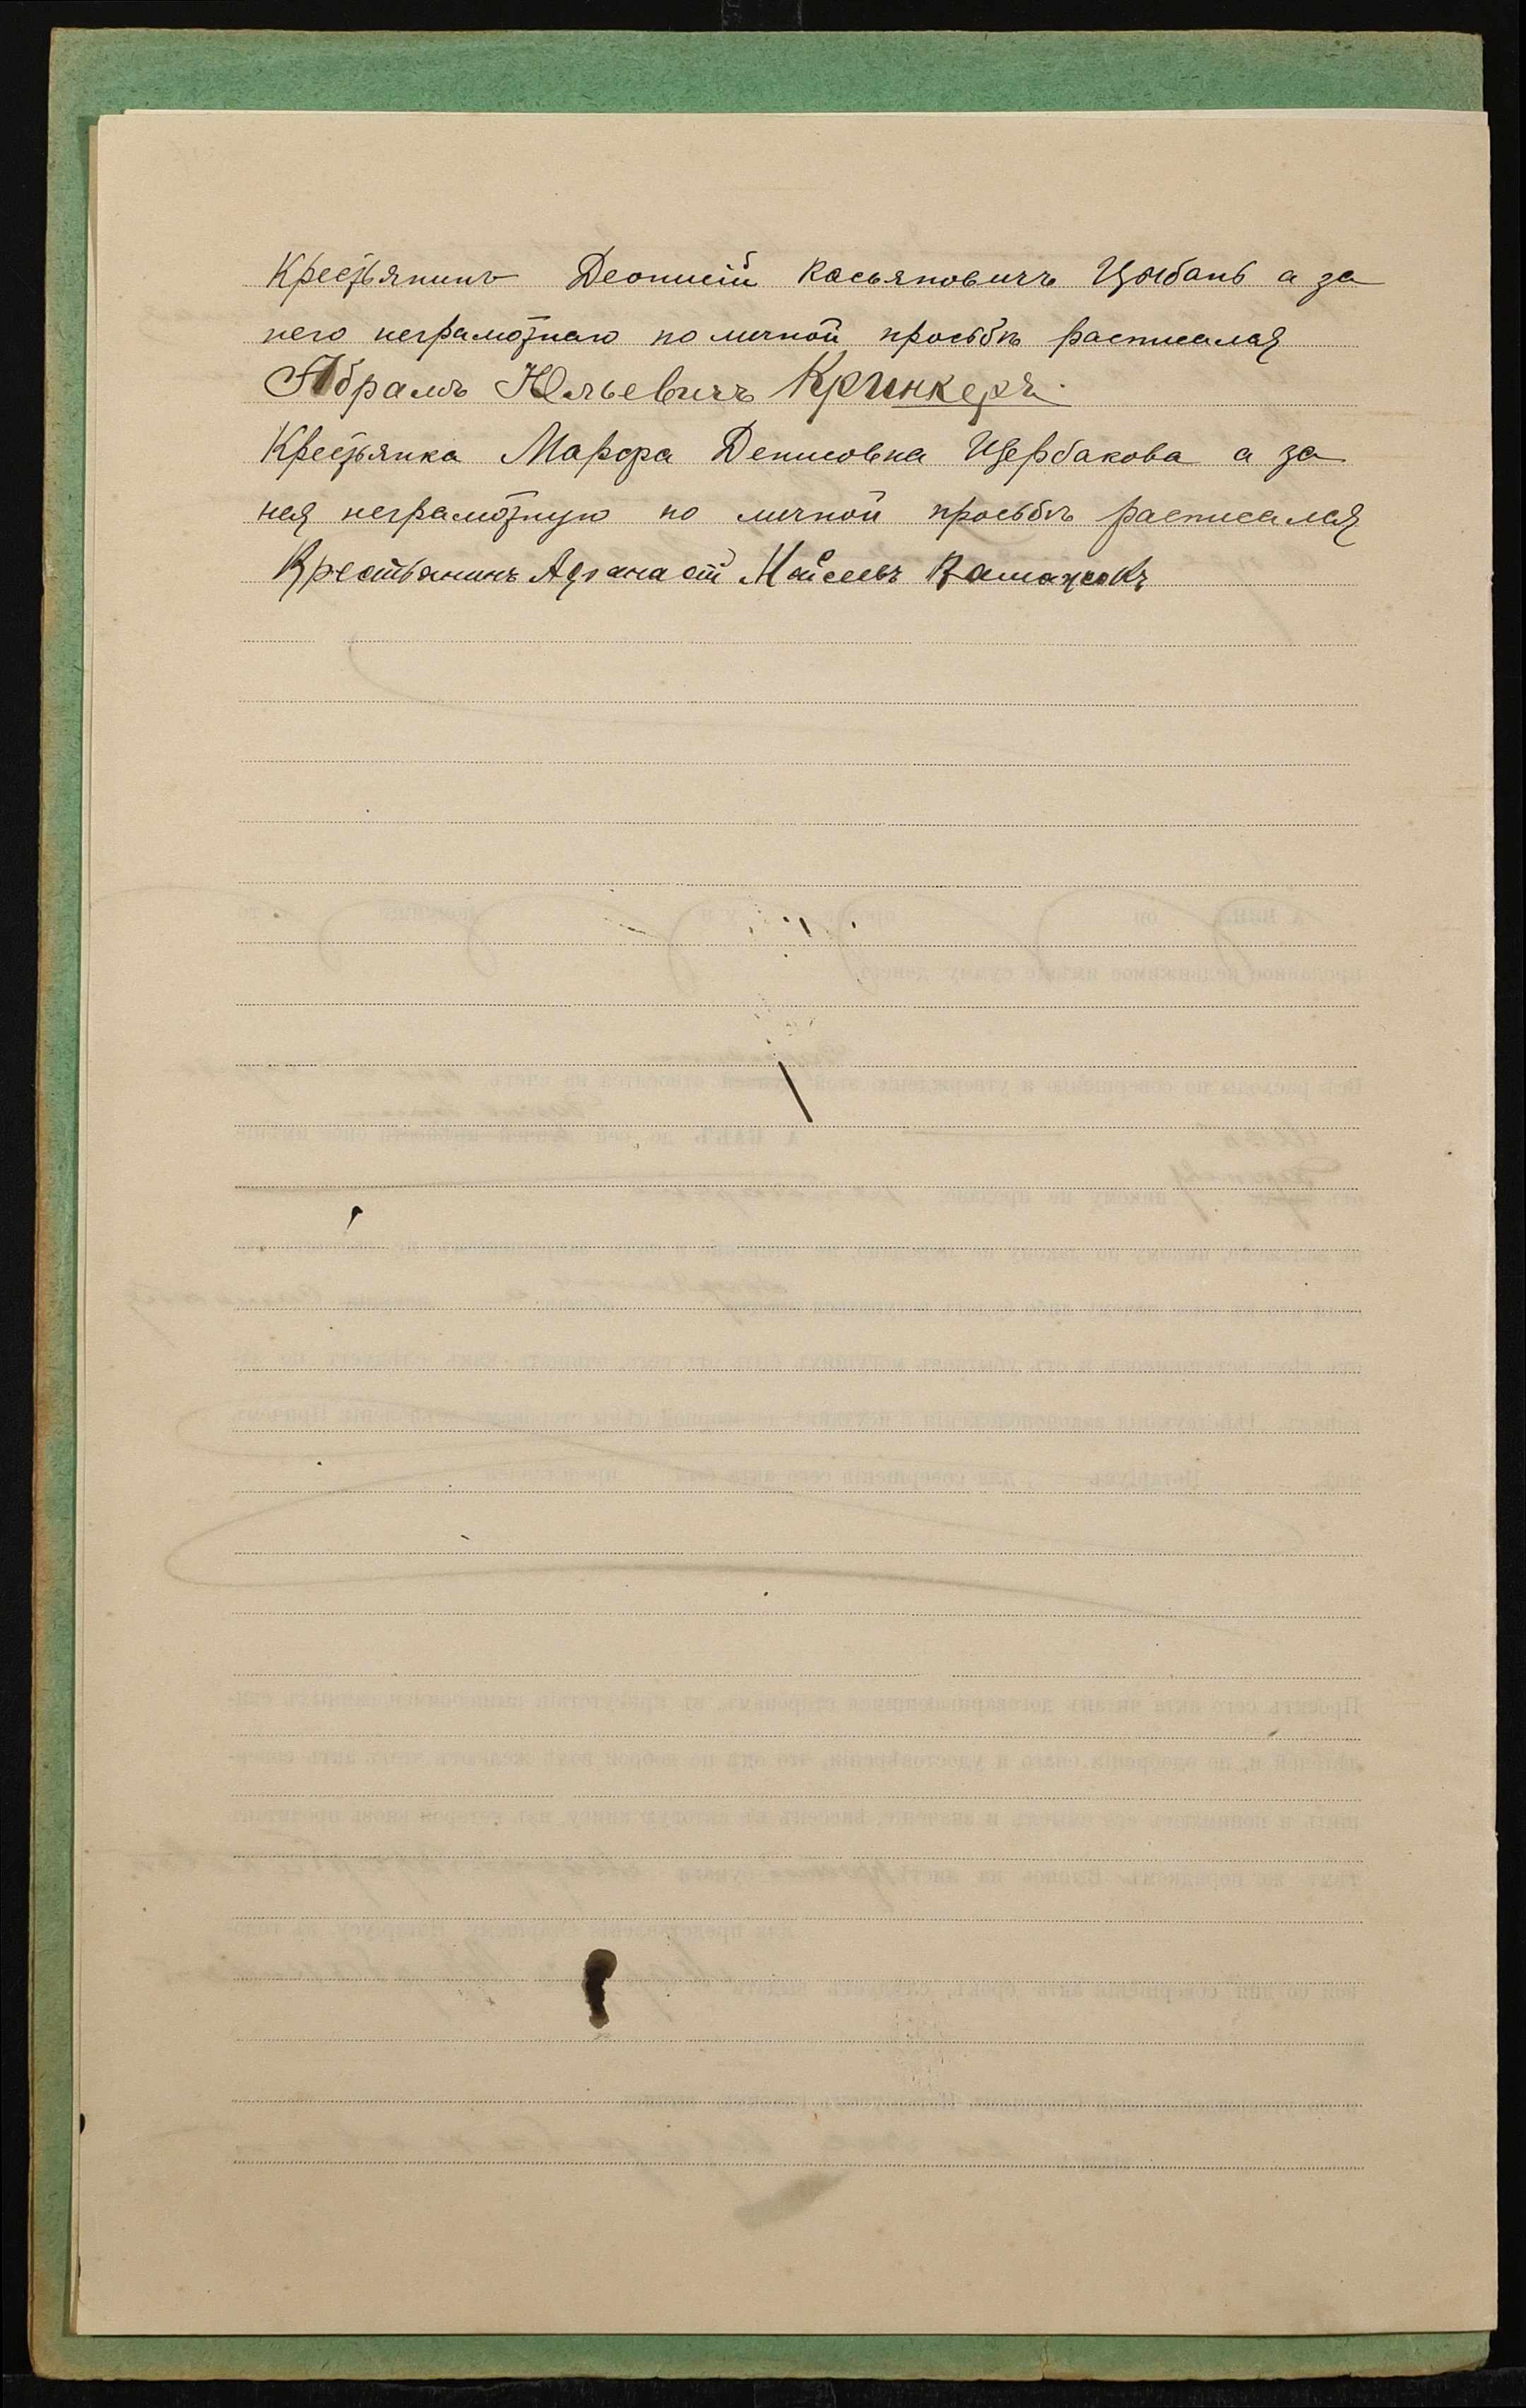 Крестьянинъ Деонисій Касьяновичъ Цыбань а за
него неграмотнаго по личной просьбѣ расписался
Абрамъ Юльевичъ Кринкеръ.
Крестьянка Марфа Денисовна Щербакова а за
нея неграмотную по личной просьбѣ расписался
Крестьянинъ Афанасій Моісеевъ